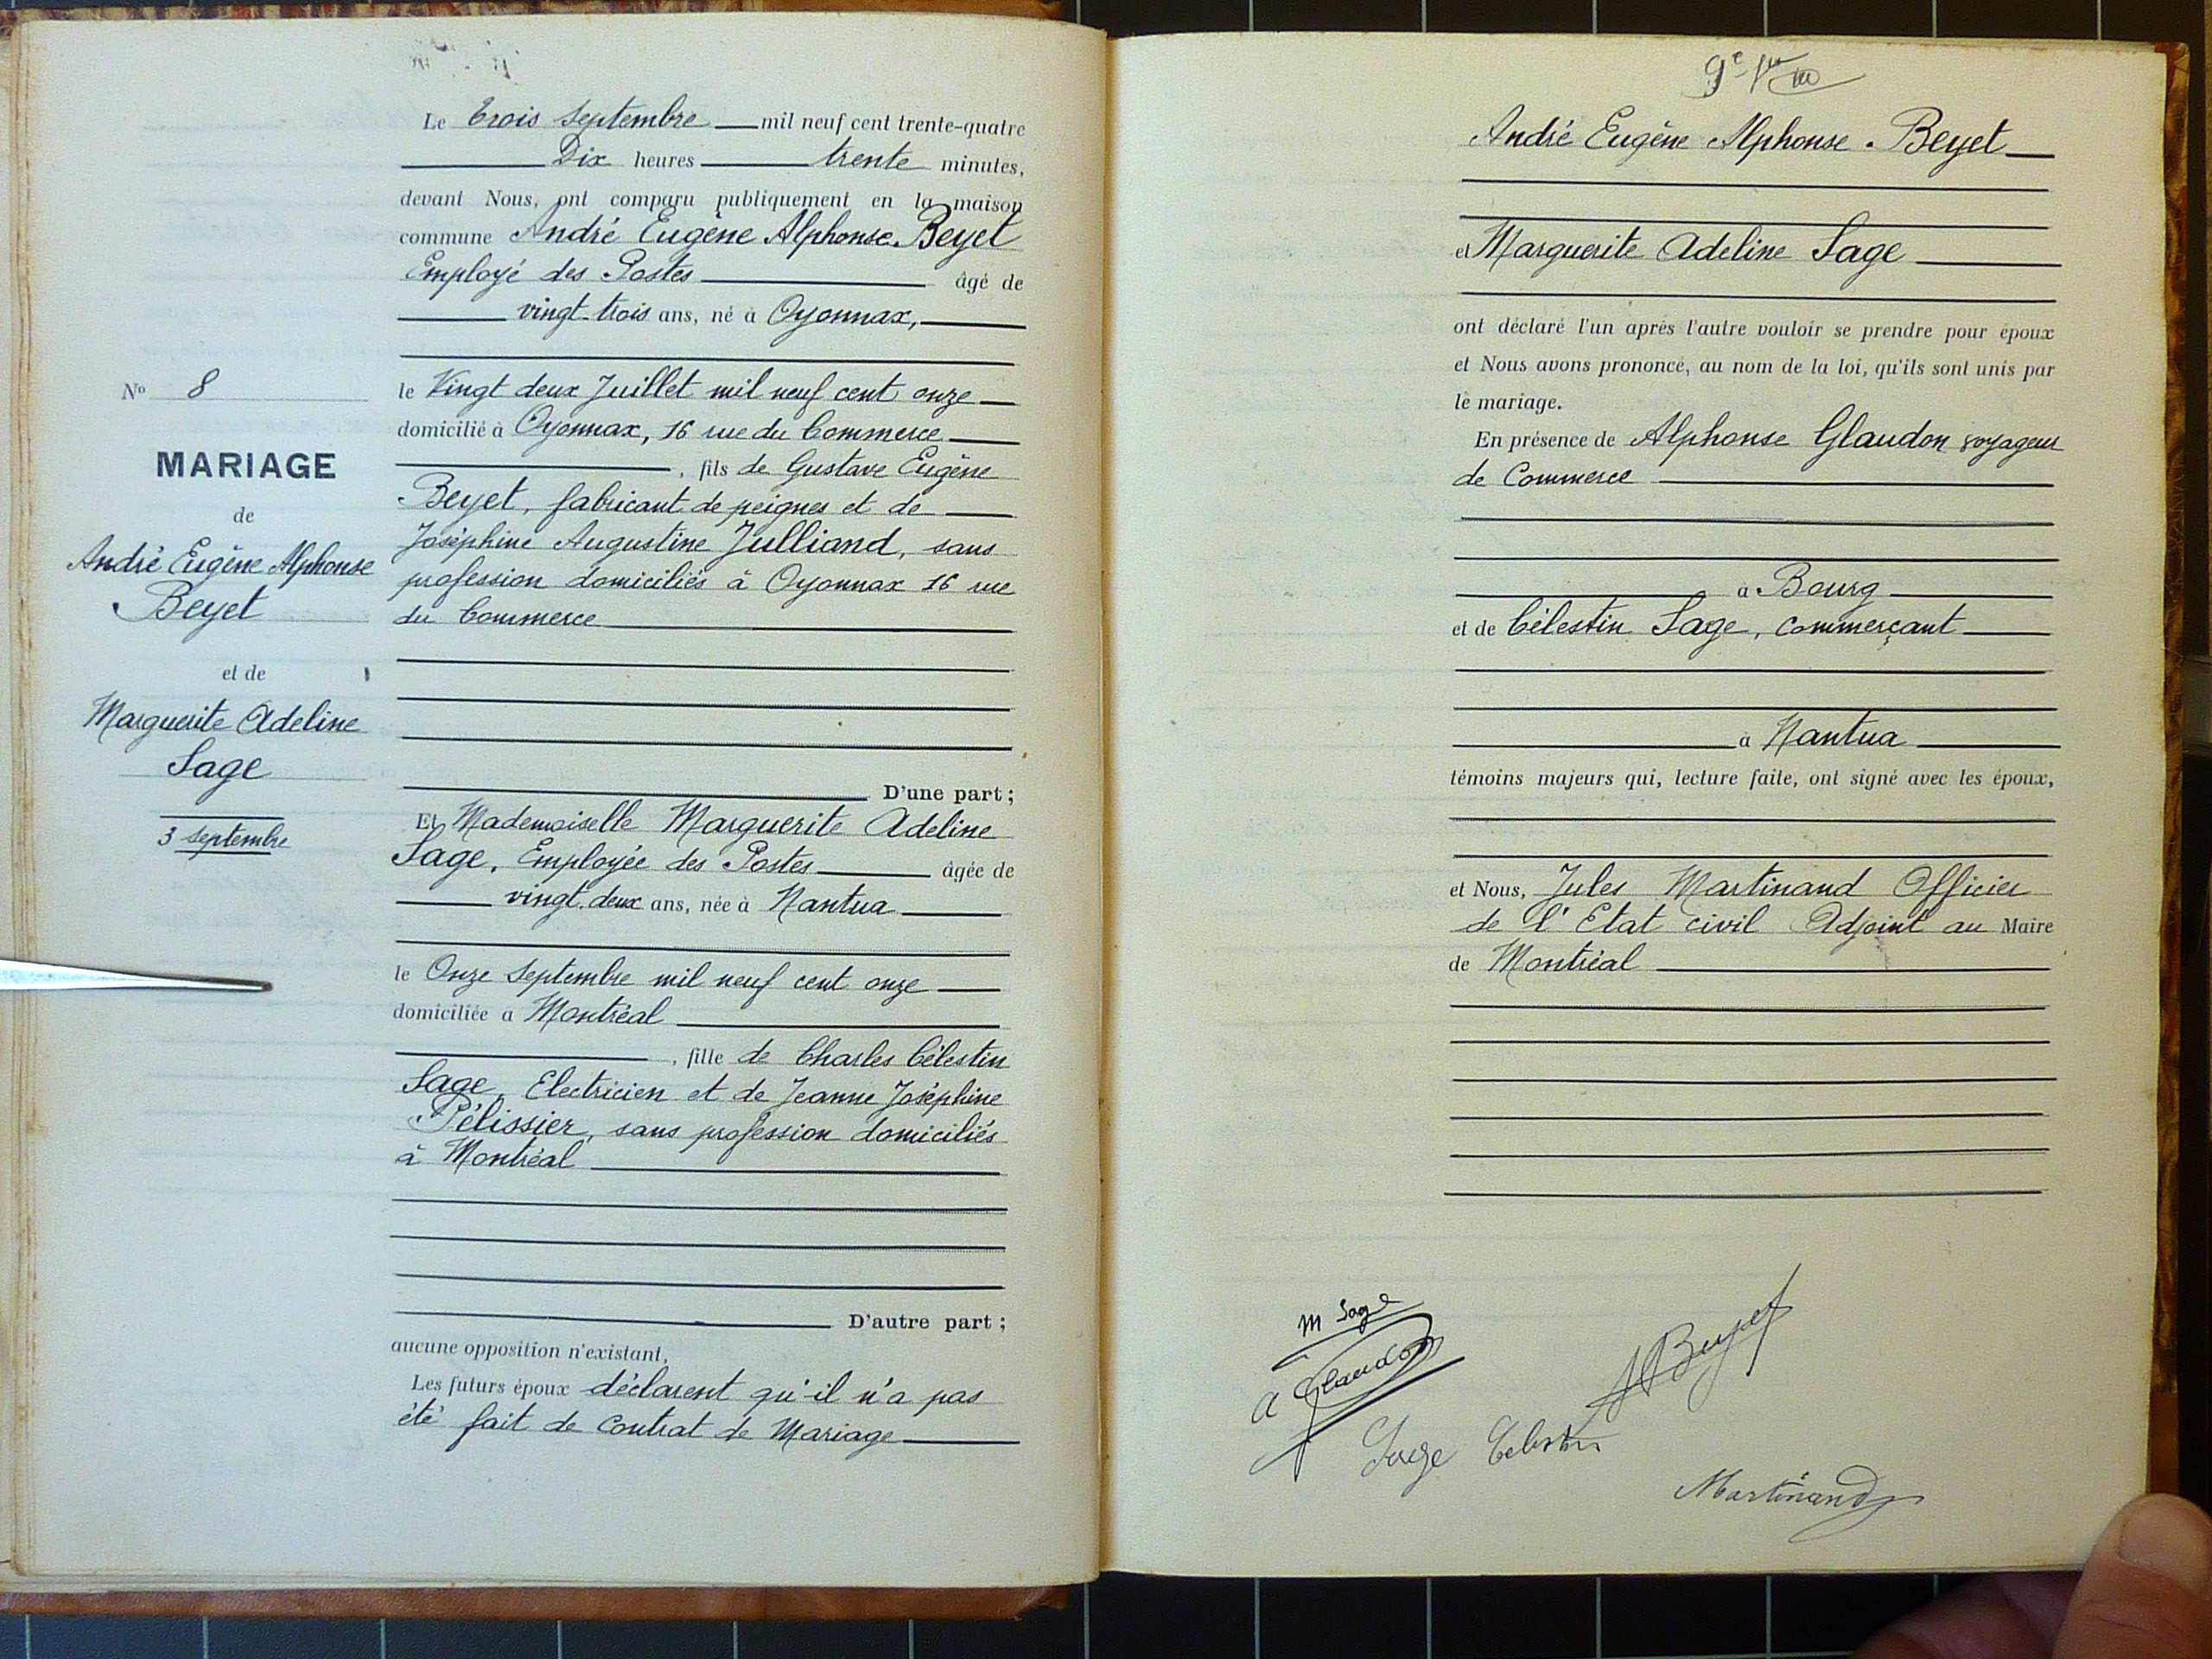 Le trois septembre mil neuf cent trente-quatre
Dix heures trente minutes,
devant Nous, ont comparu publiquement en la maison
commune André Eugène Alphonse Beyet
Employé des Postes âgé de
vingt-trois ans, né à Oyonnax,
le Vingt deux Juillet mil neuf cent onze
domicilié à Oyonnax, 16 rue du Commerce
, fils de Gustave Eugène
Beyet, fabricant de peignes et de
Joséphine Augustine Julliand, sans
profession domiciliés à Oyonnax 16 rue
du Commerce
D'une part ;
Et Mademoiselle Marguerite Adeline
Sage, Employée des Postes âgée de
vingt-deux ans, née à Nantua
le Onze Septembre mil neuf cent onze
domiciliée à Montréal
, fille de Charles Célestin
Sage, Electricien et de Jeanne Joséphine
Pélissier, sans profession domiciliés
à Montréal
D'autre part ;
aucune opposition n'existant,
Les futurs époux déclarent qu'il n'a pas
été fait de contrat de Mariage
No 8
MARIAGE
de
André Eugène Alphonse
Beyet
et de
Marguerite Adeline
Sage
3 septembre
André Eugène Alphonse Beyet
et Marguerite Adeline Sage
ont déclaré l'un après l'autre vouloir se prendre pour époux
et Nous avons prononcé, au nom de la loi, qu'ils sont unis par
le mariage.
En présence de Alphonse Glaudon voyageur
de Commerce
à Bourg
et de Célestin Sage, commerçant
à Nantua
témoins majeurs qui, lecture faite, ont signé avec les époux,
et Nous, Jules Martinand Officier
de l'Etat civil Adjoint au Maire
de Montréal
M Sage
A Glaudon
A Beyet
Sage Célestin
Martinand